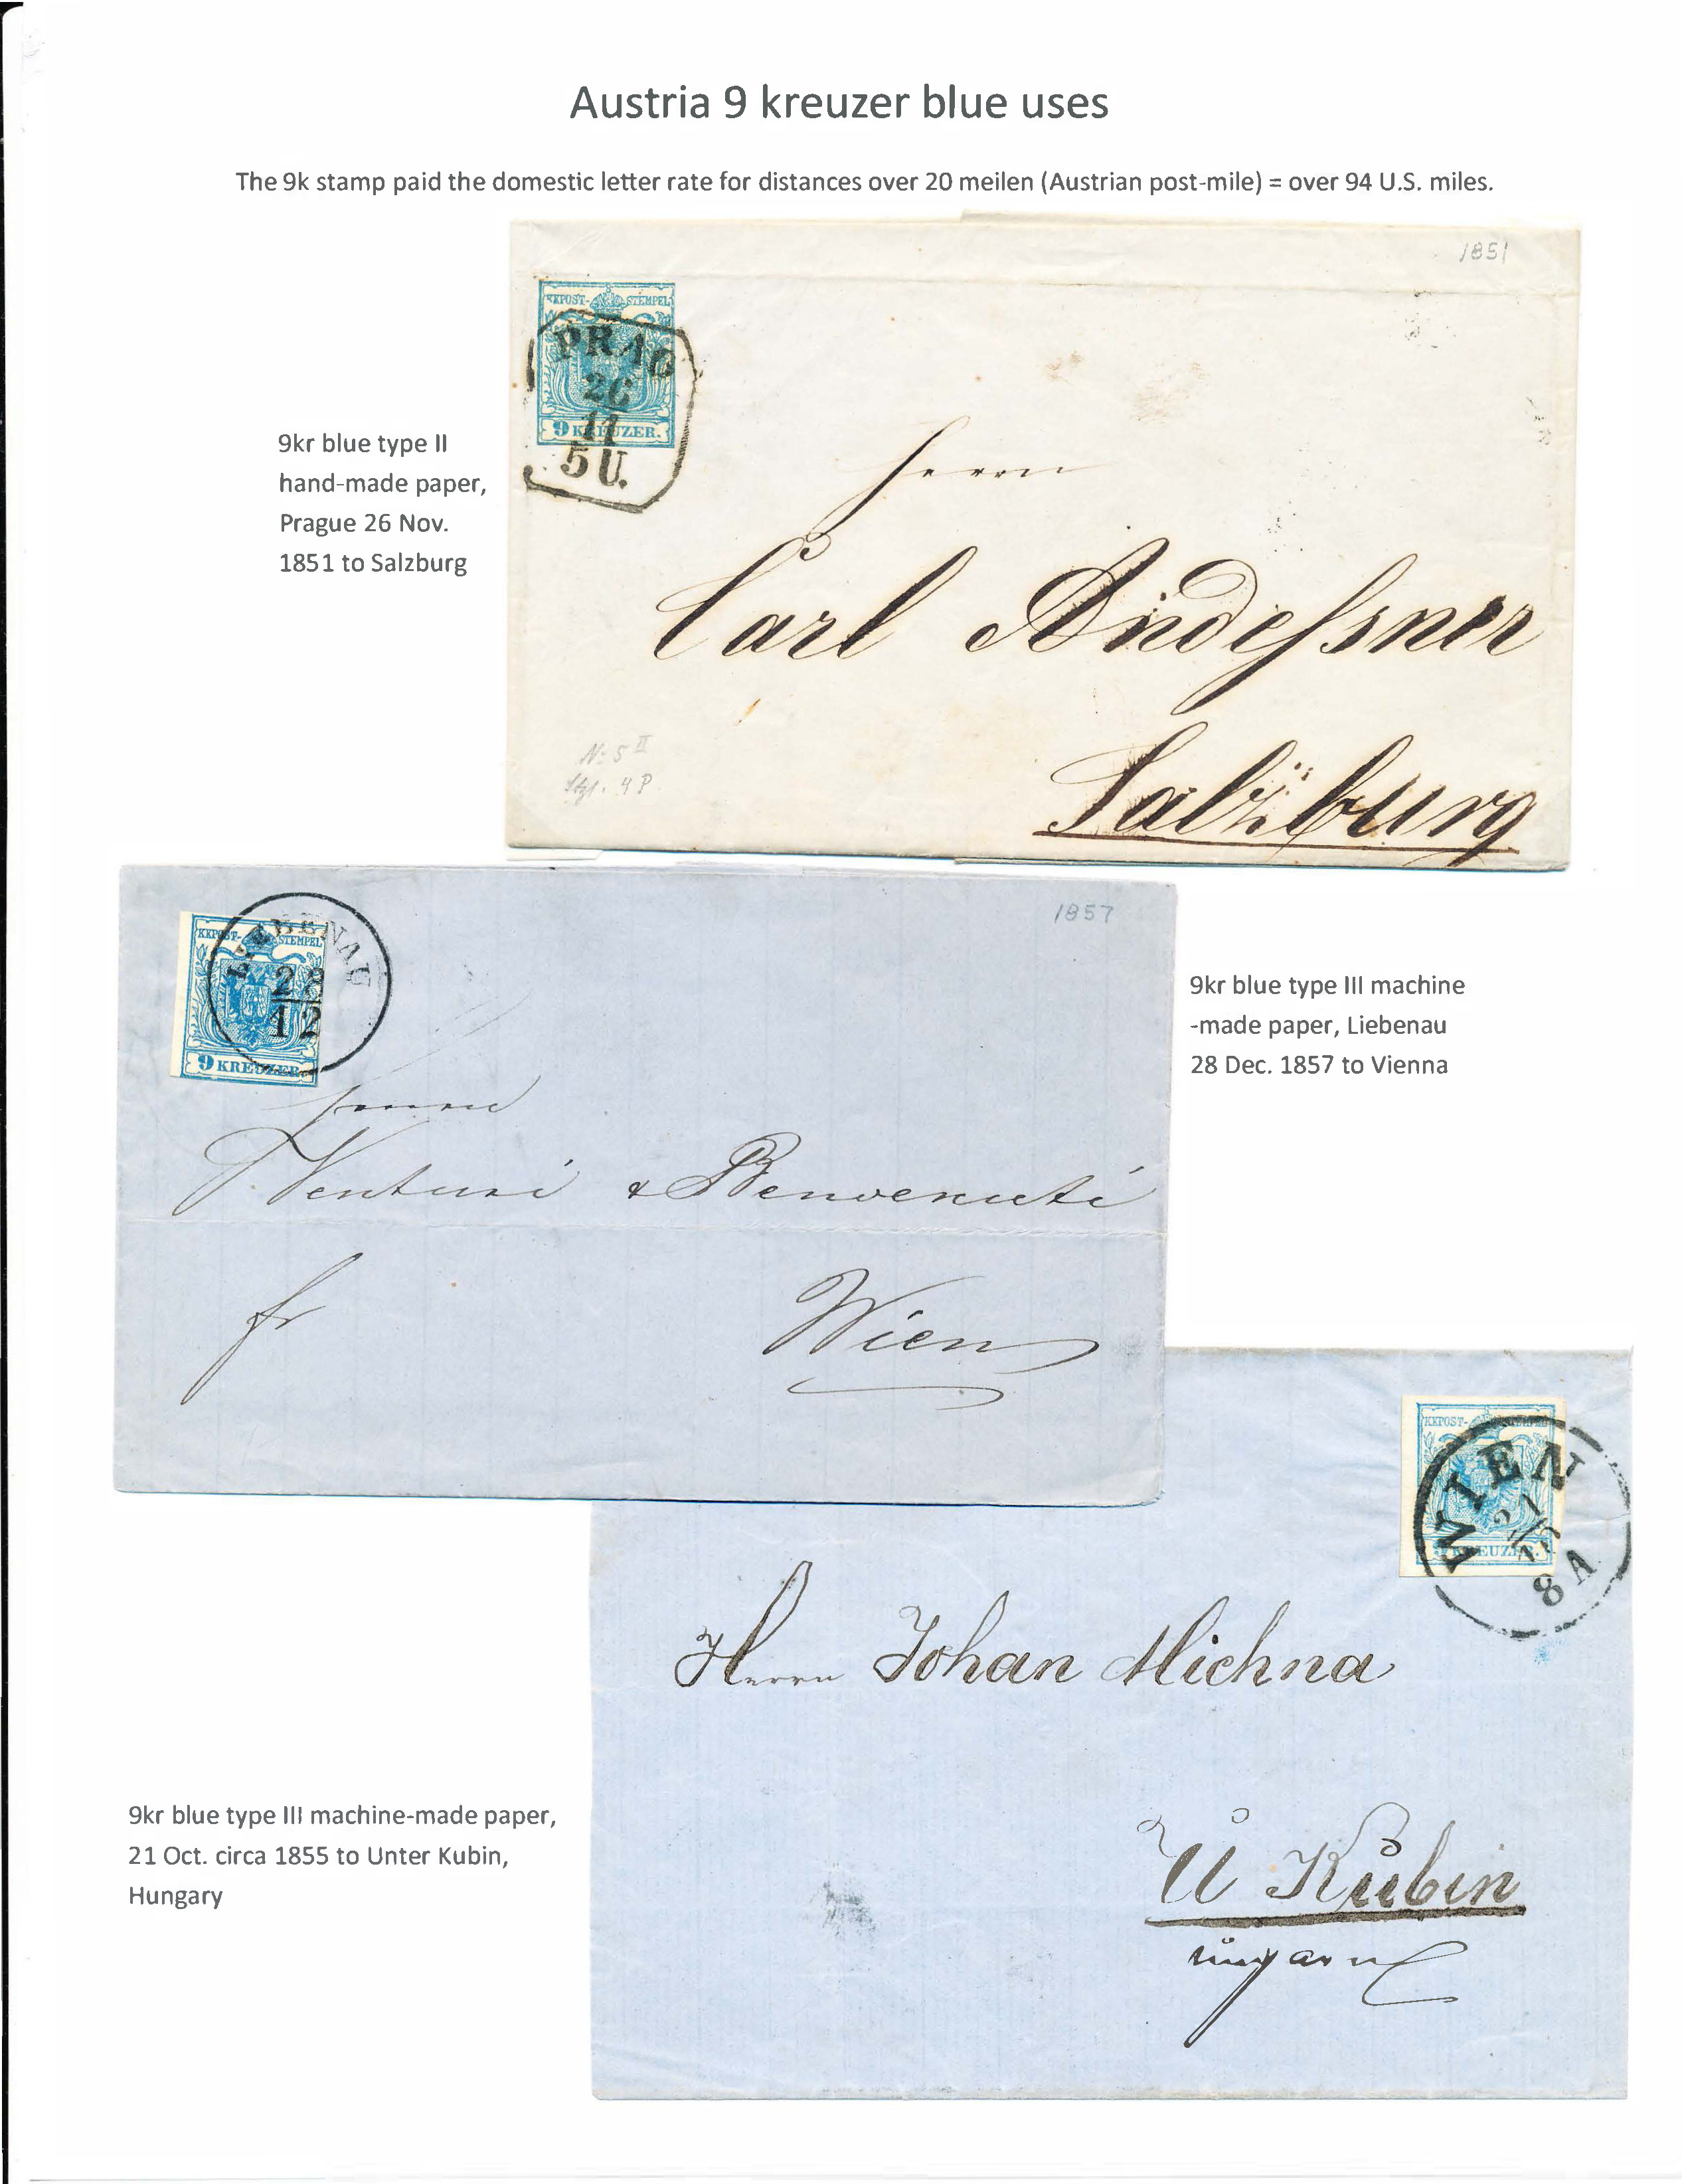 Austria 9 kreuzer blue uses
The 9k stamp paid the domestic letter rate for distances over 20 meilen (Austrian post-mile) = over 94 U.S. miles.
1851
KKPOST- STEMPEL
PRAG
26
11
5 U.
9 KREUZER.
9kr blue type II
hand-made paper,
Prague 26 Nov.
1851 to Salzburg
Herrn
Carl Andeßner
Salzburg
N: 5 II
4 P
1857
KKPOST- STEMPEL
LIEBENAU
28
12
9 KREUZER.
9kr blue type III machine
-made paper, Liebenau
28 Dec. 1857 to Vienna
Herrn
Venturi & Benvenuti
fr Wien
KKPOST- STEMPEL
WIEN
21
8 A
9 KREUZER.
Herrn Johan Michna
U Kubin
ungarn
9kr blue type III machine-made paper,
21 Oct. circa 1855 to Unter Kubin,
Hungary